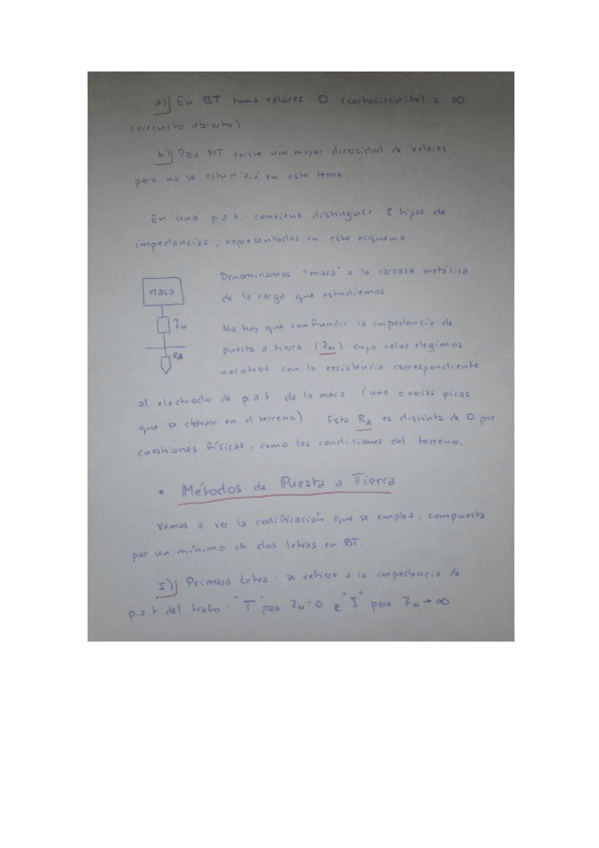 a) En BT toma valores 0 (cortocircuito) o ∞
(circuito abierto)
b) Para MT existe una mayor diversidad de valores,
pero no se estudiará en este tema.
En una p.a.t. conviene distinguir 2 tipos de
impedancias, representadas en este esquema.
Masa
ZN
RA
Denominamos "masa" a la carcasa metálica
de la carga que estudiemos.
No hay que confundir la impedancia de
puesta a tierra (ZN) cuyo valor elegimos
nosotros con la resistencia correspondiente
al electrodo de p.a.t de la masa (una o varias picas
que se clavan en el terreno) Esta RA es distinta de 0 por
cuestiones físicas, como las condiciones del terreno.
• Métodos de Puesta a Tierra
Vamos a ver la codificación que se emplea, compuesta
por un mínimo de dos letras en BT.
I) Primera Letra: se refiere a la impedancia de
p.a.t del trafo. "T" para ZN=0 e "I" para ZN→∞